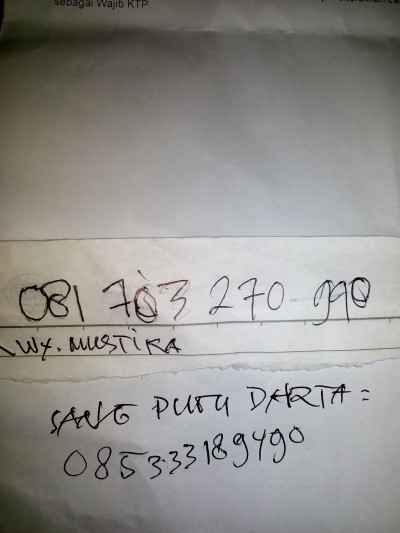 sebagai Wajib KTP.
081 703 270 990
WY. MUSTIKA
SANG PUTU DARTA =
085333189490